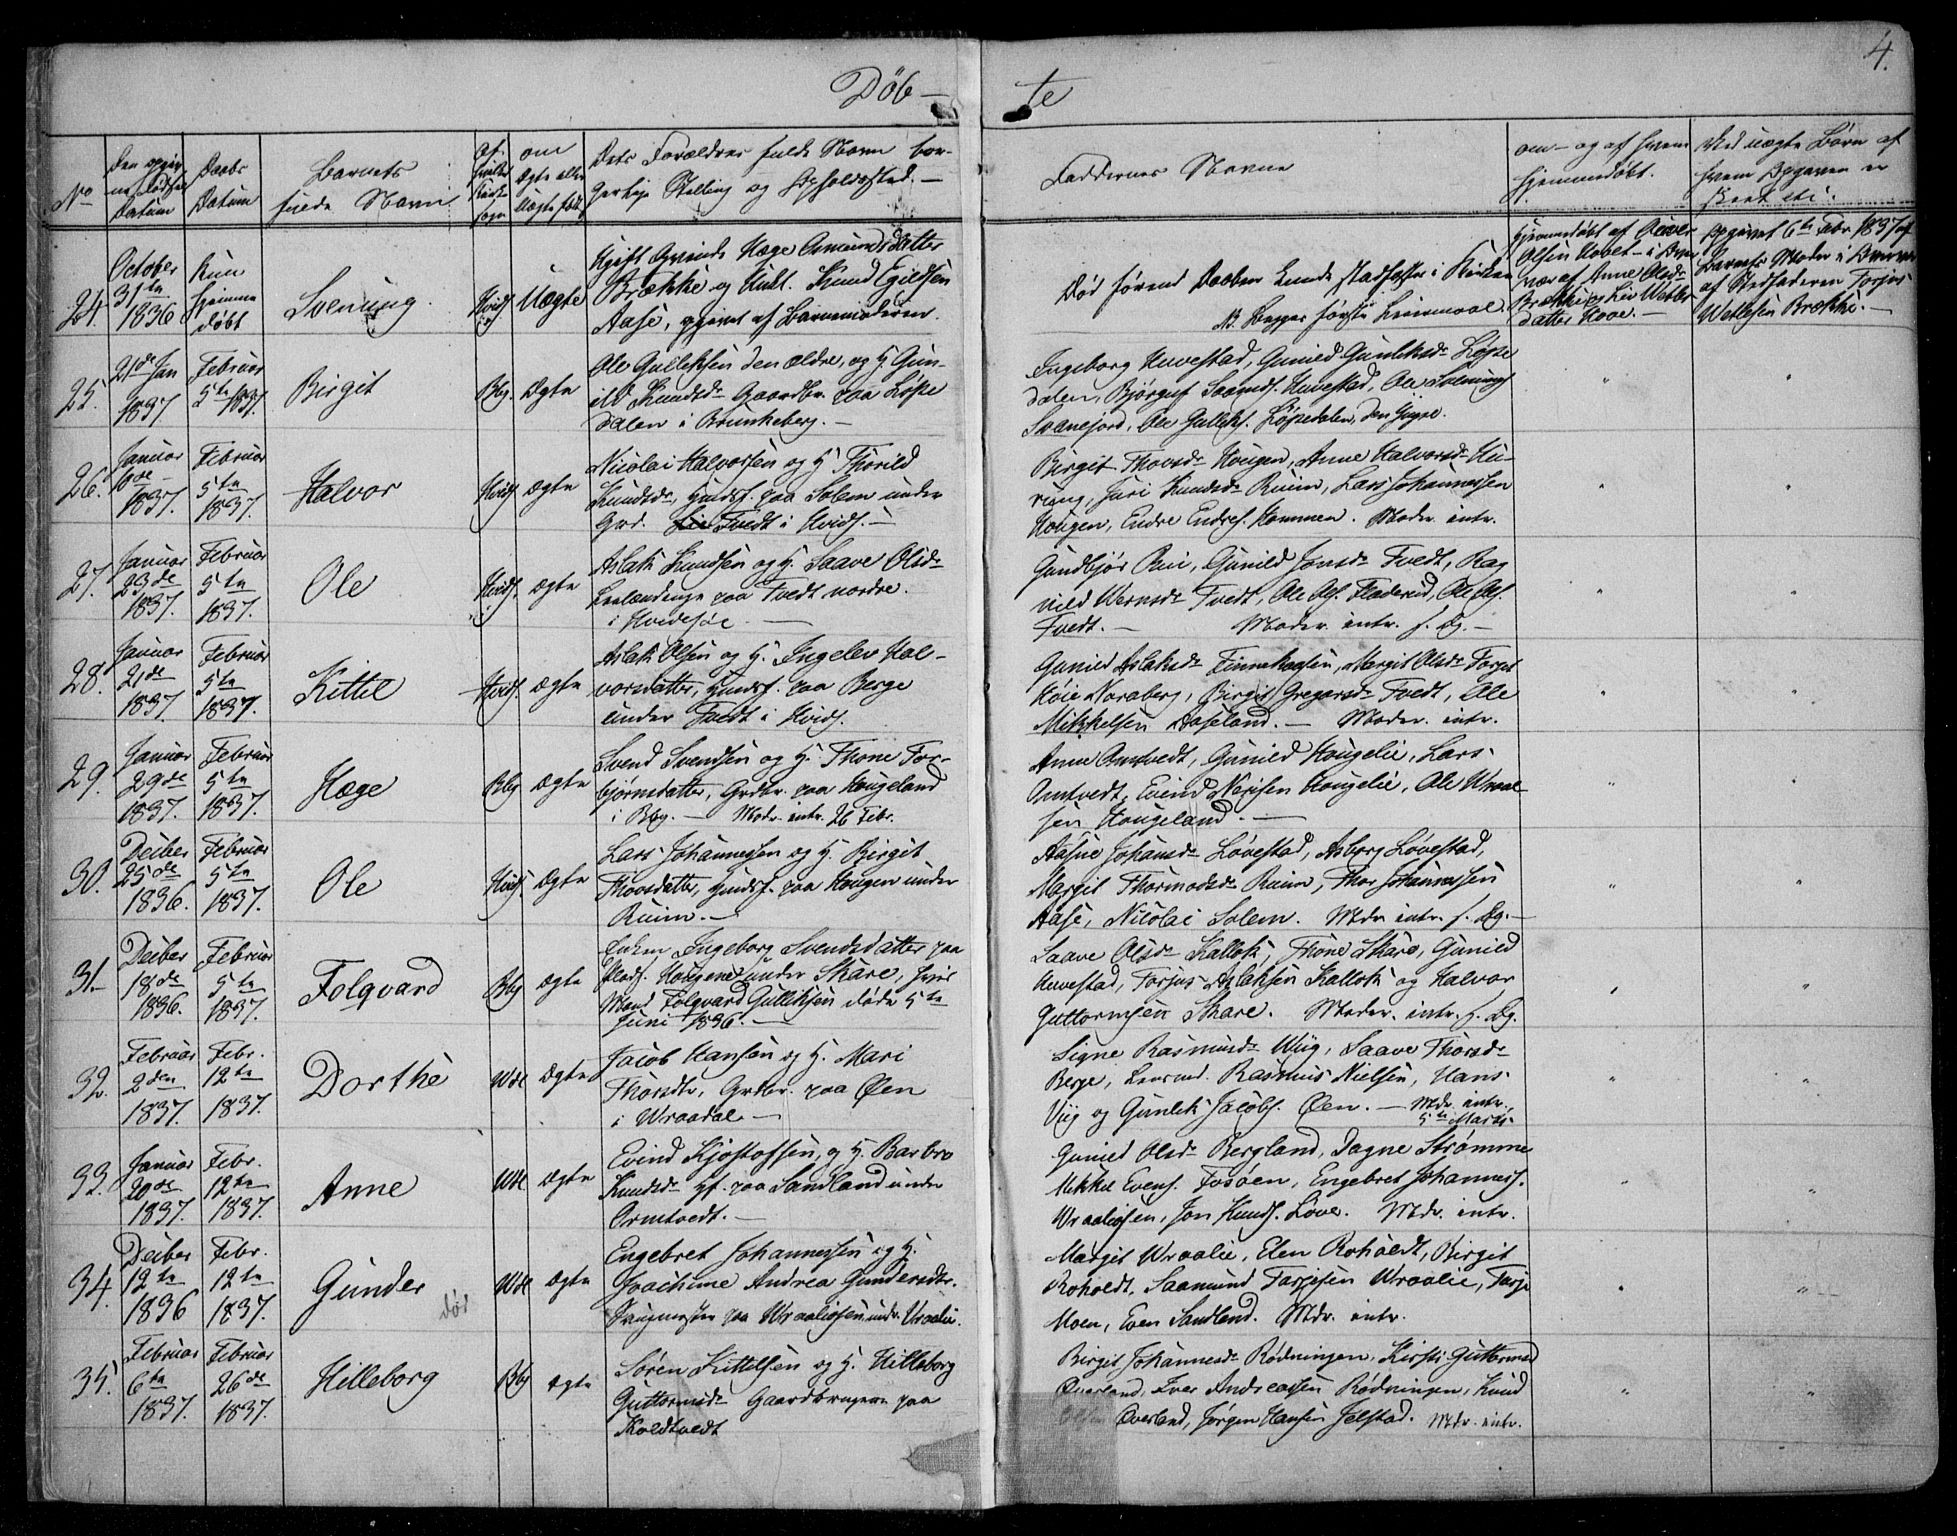 4.
Døb — te
No
Den opgivne Fødsels Datum
Daabs Datum
Barnets fulde Navn
af hvilket Kirkesogn
om Ægte eller Uægte født
Dets Forældres fulde Navn borgerlige Stilling og Opholdssted. —
Faddernes Navne
om- og af hvem hjemmedøbt.
Ved uægte Børn af hvem Opgaven er skeet etc.
24.
October 31te 1836
Kun hjemme døbt
Svenung
Hvids.
Uægte
Ugift Qvinde Hæge Osmundsdatter
Brække og Unkl. Knud Egilsen
Aase, opgivet af Barnemoderen.
Død førend Daaben kunde stadfæstes i Kirken
NB. Begges første Leiermaal.
Hjemmedøbt af
Olsen Hovet
af Anne Olsdr
Brække og Liv Wetle
datter Hove. —
Opgivet 6te Febr. 1837 af
Barnets Moder
af Stedfaderen Torjus
Wetlesen Brække. —
25.
21de Jan 1837
Februar 5te 1837.
Birgit
Bbg.
Ægte
Ole Gulleksen den ældre, og H. Gun-
ild Knudsdr Gaardbr. paa Løpe
dalen i Brunkeberg. —
Ingeborg Huvestad, Gunild Gunleksdr Løpe
dalen, Bjørguf Saamds. Huvestad, Ole Svenungs.
Svanejord, Ole Gulleks. Løpedalen, den Yngre.
26.
Januar 6de 1837.
Februar 5te 1837.
Halvor
Hvids.
Ægte
Nicolai Halvorsen og H. Thorild
Knudsdr, Huusf. paa Solem under
Grd. Tvedt i Hvids. —
Birgit Thovsdr Hougen, Anne Halvorsdr Hu-
rung, Juri Knudsdr Ruim, Lars Johannessen
Hougen, Endre Endres. Kommen. Moder. intr.
27.
Januar 23de 1837.
Februar 5te 1837.
Ole
Hvids.
Ægte
Aslak Knudsen og H. Saave Olsdr
Leilændinge paa Tvedt nordre.
i Hvidesøe. —
Gundbjør Rui, Gunild Jonsdr Tvedt, Rag
nild Wernsdr Tvedt, Ole Ols. Fladerud, Ole Ols.
Tvedt. — Moder. intr. s. Dg. —
28.
Januar 21de 1837
Februar 5te 1837.
Kittil
Hvids.
Ægte
Aslak Olsen og H. Ingelev Hal-
vorsdatter, Huusf. paa Berge
under Tvedt i Hvids.
Gunild Aslaksdr Finnekaasen, Margit Olsdr
Høie Noraberg, Birgit Gregarsdr Tvedt, Ole
Mikkelsen Aaseland. — Moder. intr.
29.
Januar 29de 1837.
Februar 5te 1837.
Hæge
Bbg
Ægte
Svend Svendsen og H. Thone Tor-
bjørnsdatter, Grdbr. paa Hougeland
i Bbg. — Modr. intr. 26 Febr.
Anne Omtvedt, Gunild Hougelie, Lars
Omtvedt, Evind Hougelie, Ole
sen Hougeland. —
30.
Decber 25de 1836.
Februar 5te 1837.
Ole
Hvids.
Ægte
Lars Johannessen og H. Birgit
Thovsdatter, Huusf. paa Hougen under
Ruim. —
Aasne Johansdr Løvestad, Asborg Løvestad,
Margit Thormodsdr Ruim, Thor Johannessen
Aase, Nicolai Solem. Mdr. intr. s. Dg. —
31.
Decber 18de 1836.
Februar 5te 1837.
Folqvard
Bbg
Ægte
Enken Ingeborg Svendsdatter paa
Plads. Haugene under Skare, hvis
Mand Folqvard Gulliksen døde 5te
Juni 1836. —
Saave Olsdr Kallok, Thone Skare, Gunild
Huvestad, Torjus Aslaksen Kallok og Halvor
Guttormsen Skare. Moder. intr. s. Dg.
32.
Februar 2den 1837.
Febr. 12te 1837.
Dorthe
Wdl
Ægte
Jacob Hansen og H. Mari
Thorsdtr, Grdbr. paa Øen
i Wraadal. —
Signe Rasmusdr Wiig, Saave Thorsdr
Berge, Lensmd. Rasmus Nielsen, Hans
Viig og Gunlek Jacobs. Øen. — Mdr. intr.
5te Marts.
33.
Januar 20de 1837.
Febr. 12te 1837.
Anne
Wdl
Ægte
Evind Kjøstofsen, og H. Barbro
Knudsdr Hf. paa Sandland under
Ormtvedt. —
Gunild Olsdr Bergland, Dagne Strømme
Mikkel Evens. Fosøen, Engebret Johanness.
Wraaliosen, Jon Knuds. Løve. Mdr. intr.
34.
Decber 12te 1836
Febr. 12te 1837.
Gunder
død
Wdl
Ægte
Engebret Johannessen og H.
Joachime Andrea Gundersdtr.
paa Wraaliosen undr. Vraalie.
Margit Wraalie, Elen Roholdt, Birgit
Roholdt, Saamund Tarjesen Wraalie, Tarje
Moen, Even Sandland. Mdr. intr.
35.
Februar 6te 1837.
Februar 26de 1837.
Hilleborg
Bbg
Ægte
Søren Kittelsen og H. Hilleborg
Guttormsdr Gaardbrugere paa
Koldtvedt
Birgit Johannesdr Rødningen, Kirsti Guttormsd
Øverland, Iver Andreassen Rødningen, Knud
Øverland, Jørgen Hansen Jelstad. Mdr. intr.